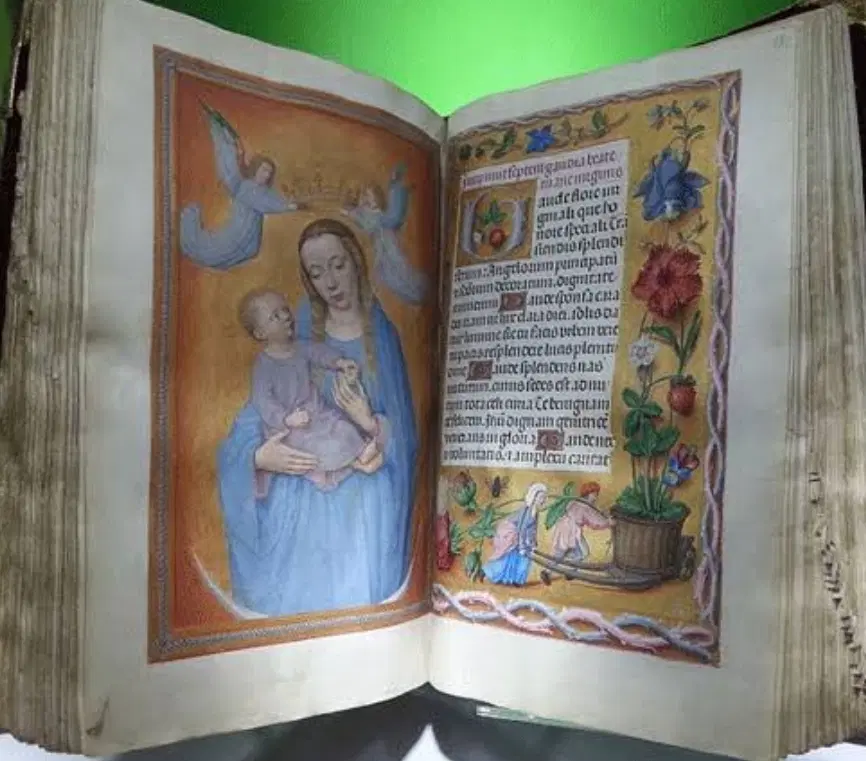 septem gaudia beate
marie virginis
aude flore vir
ginali que ho
nore speciali Tra
scendis splendi
ferum: Angelorum principatū
decoratum. dignitate
aude sponsa cara
clara diei. solis da
tur lumine sic tu facis orbem vere
tu pacis resplendere lucis pleni tu
dine aude splendens uas
virtutum. cuius sedes est ad nu
tum tota celi curia Te benignam
felicem. Jhū dignam
venerans in gloria aude ne
voluntatis. amplexu caritat